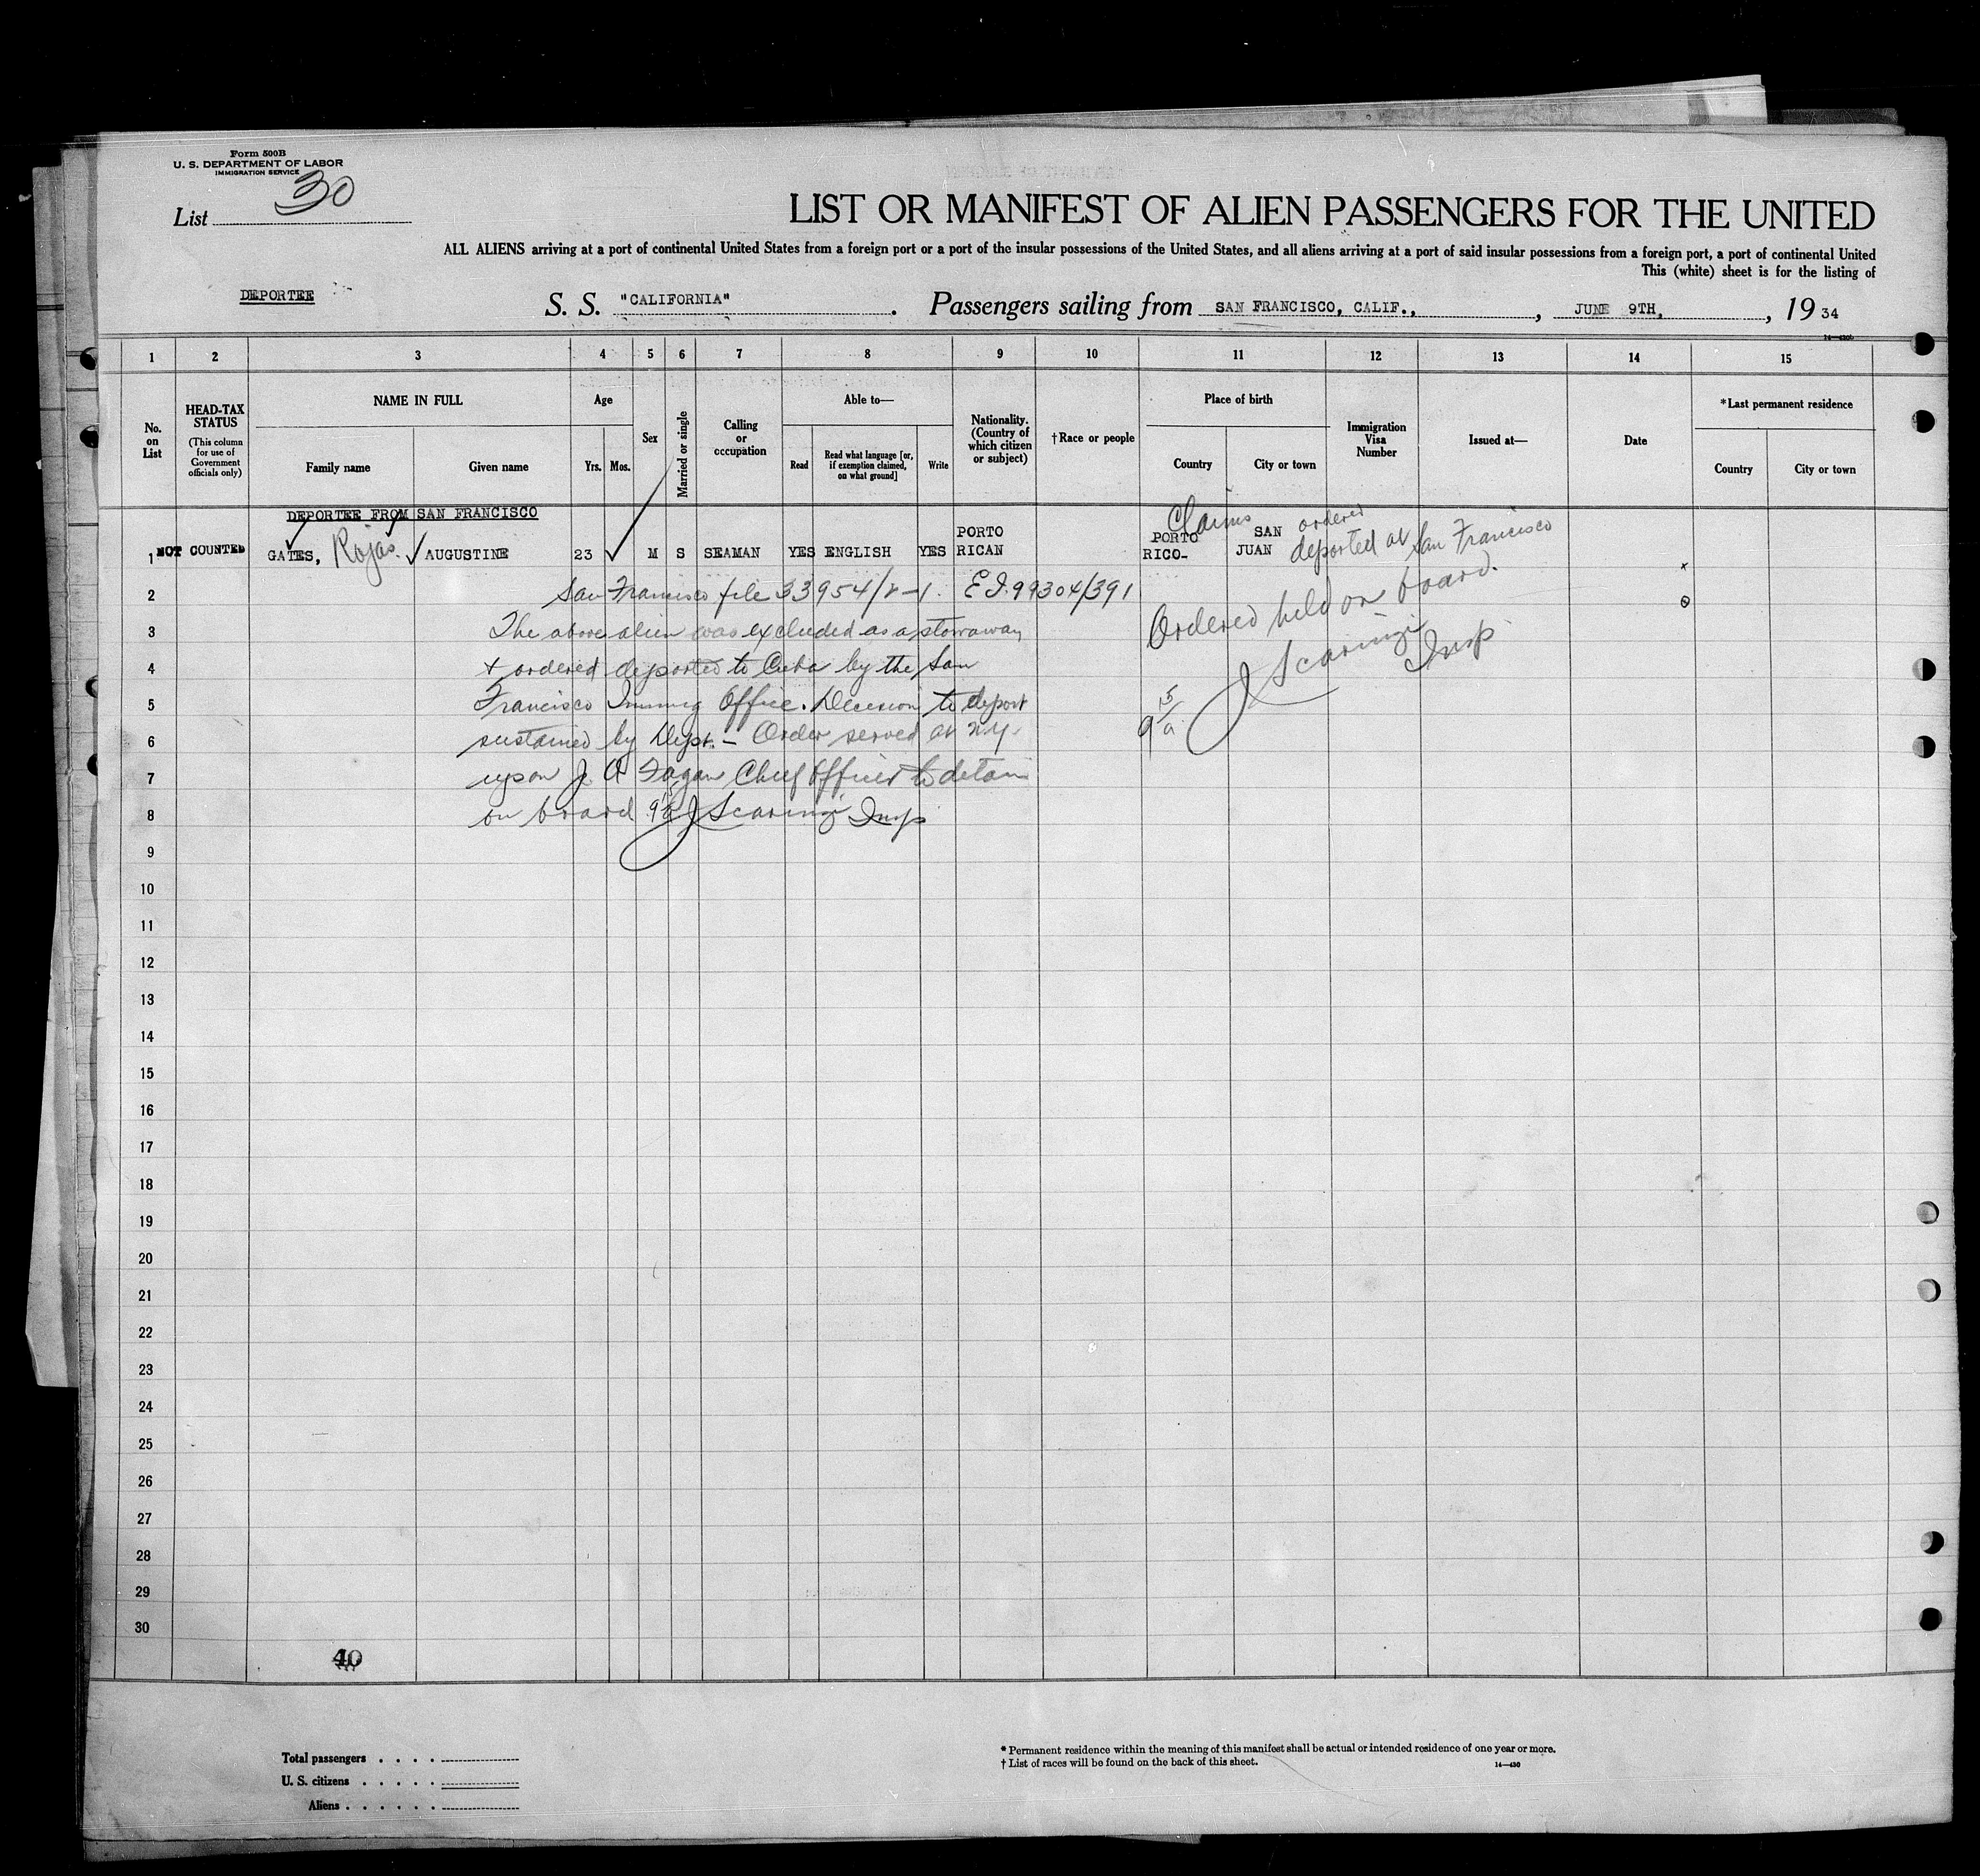 Form 500B
U. S. DEPARTMENT OF LABOR
IMMIGRATION SERVICE
List 30
LIST OR MANIFEST OF ALIEN PASSENGERS FOR THE UNITED
ALL ALIENS arriving at a port of continental United States from a foreign port or a port of the insular possessions of the United States, and all aliens arriving at a port of said insular possessions from a foreign port, a port of continental United
This (white) sheet is for the listing of
DEPORTEE
S. S. "CALIFORNIA". Passengers sailing from SAN FRANCISCO, CALIF., , JUNE 9TH, , 19 34
1 2 3 4 5 6 7 8 9 10 11 12 13 14 15
No. on List
HEAD-TAX STATUS
(This column for use of Government officials only)
NAME IN FULL
Family name
Given name
Age
Yrs.
Mos.
Sex
Married or single
Calling or occupation
Able to—
Read
Read what language [or, if exemption claimed, on what ground]
Write
Nationality. (Country of which citizen or subject)
†Race or people
Place of birth
Country
City or town
Immigration Visa Number
Issued at—
Date
*Last permanent residence
Country
City or town
DEPORTEE FROM SAN FRANCISCO
1 NOT COUNTED GATES, Rojas. AUGUSTINE 23 M S SEAMAN YES ENGLISH YES PORTO RICAN Claims PORTO RICO- SAN JUAN ordered deported at San Francisco
2 San Francisco file 33954/2-1. E.I. 99304/391
Ordered held on board.
J Scaringi Insp
3 The above alien was excluded as a stowaway
4 + ordered deported to Cuba by the San
5 Francisco Immig Office. Decision to deport
6 sustained by Dept. - Order served at N.Y.
7 upon J. A Fagan Chief Officer to detain
8 on board J Scaringi Insp
9
10
11
12
13
14
15
16
17
18
19
20
21
22
23
24
25
26
27
28
29
30
40
Total passengers . . . .
U. S. citizens . . . . .
Aliens . . . . . .
* Permanent residence within the meaning of this manifest shall be actual or intended residence of one year or more.
† List of races will be found on the back of this sheet.
14—430